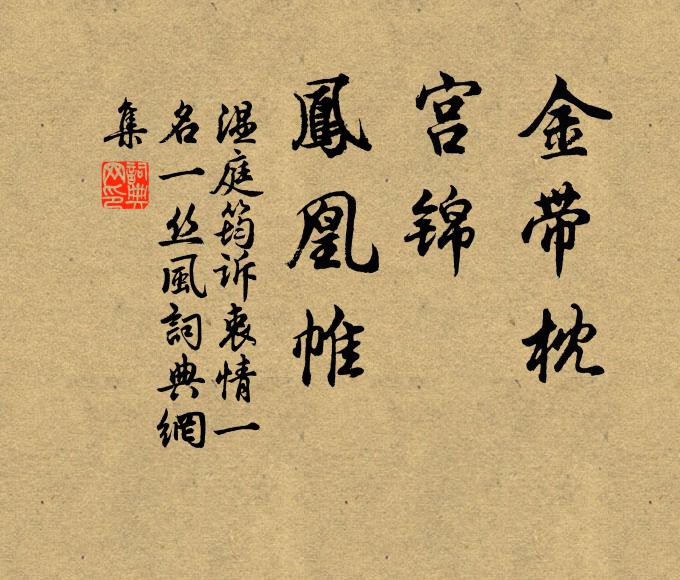 金带枕
宫锦
鳳凰帷
温庭筠诉衷情一
名一丝風詞典網
集
詞典
网印